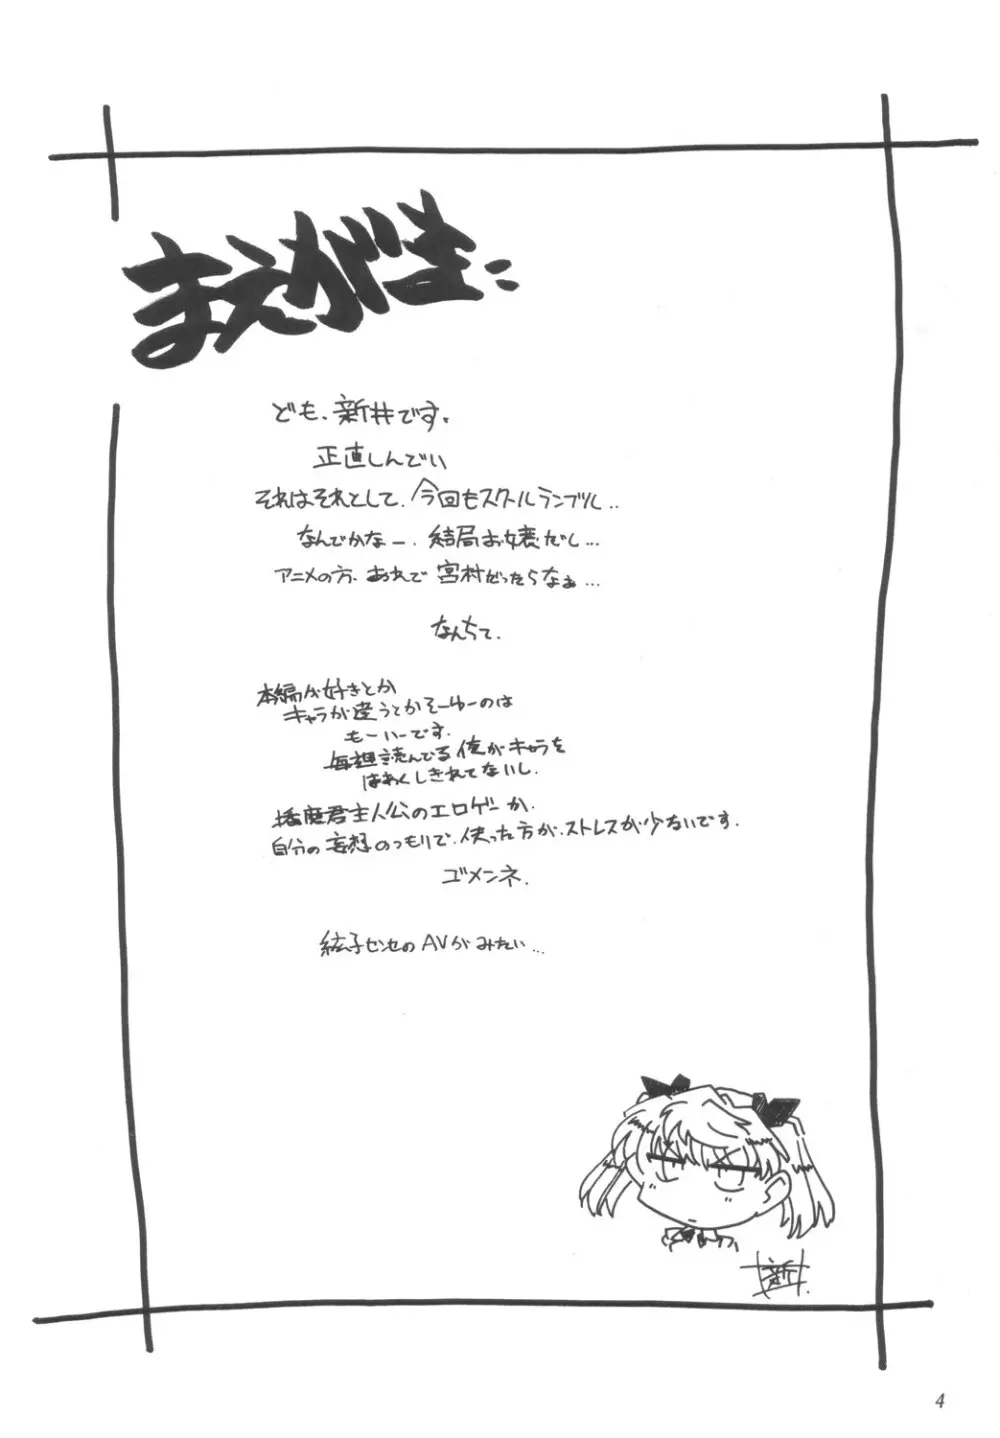 まえがき:
ども、新井です。
正直しんでい
それはそれとして、今回もスクールランブル..
なんでかなー、結局お嬢だし...
アニメの方、あれで宮村だったらなぁ...
なんちて.
本編が好きとか
キャラが違うとかそーゆーのは
もーいーです.
毎週読んでる俺がキャラを
はあくしきれてないし.
播磨君主人公のエロゲーか.
自分の妄想のつもりで、使った方が、ストレスが少ないです.
ゴメンネ.
絃子センセのAVがみたい...
新井
4